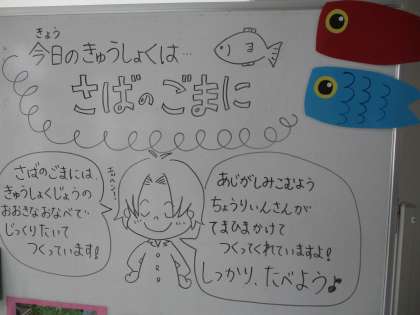 きょう
今日のきゅうしょくは…
さばのごまに
さばのごまには
きゅうしょくじょうの
おおきなおなべで…
じっくりたいて
つくっています!
あじがしみこむよう
ちょうりいんさんが
てまひまかけて
つくってくれていますよ!
しっかり、たべよう♪